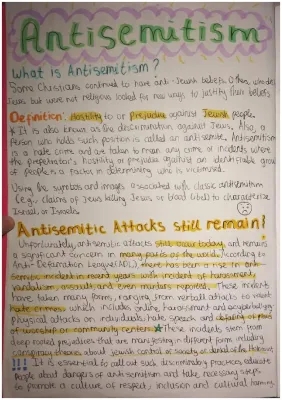 Antisemitism
What is Antisemitism?
Some Christians continued to have anti-Jewish beliefs. Others, who didn't
Jews but were not religious looked for new ways to justify their beliefs
Definition: Hostility to or Prejudice against Jewish people.
* It is also known as the discrimination against Jews. Also, a
Person who holds such position is called an anti-semite. Antisemitism
is a hate crime and are taken to mean any crime or incidents where
the perpetrator's hostility or prejudice against an identifiable group
of people is a factor in determining who is victimised.
Using the symbols and images associated with classic antisemitism
(e.g. claims of Jews killing Jesus or blood libel) to characterize
Israel or Israelis.
Antisemitic Attacks still remain!
Unfortunately, antisemitic attacks still occur today, and remains
a significant concern in many parts of the world. According to
Anti-Defamation League (ADL) there has been a rise in anti-
semitic incident in recent years with incident of harassment,
vandalism, assault and even murders reported. These incidents
have taken many forms, ranging from verbal attacks to violent
hate crimes which includes online harassment and
physical attacks on individuals, hate speech and defacing of places
of worship or community centers. ★ These incidents stem from
deep rooted prejudices that are manifesting in different forms including
conspiracy theories about Jewish control of society or denial of the Holocaust
!!! It is essential to call out such discriminatory practices, educate
people about dangers of antisemitism and take necessary steps
to promote a culture of respect, inclusion and cultural